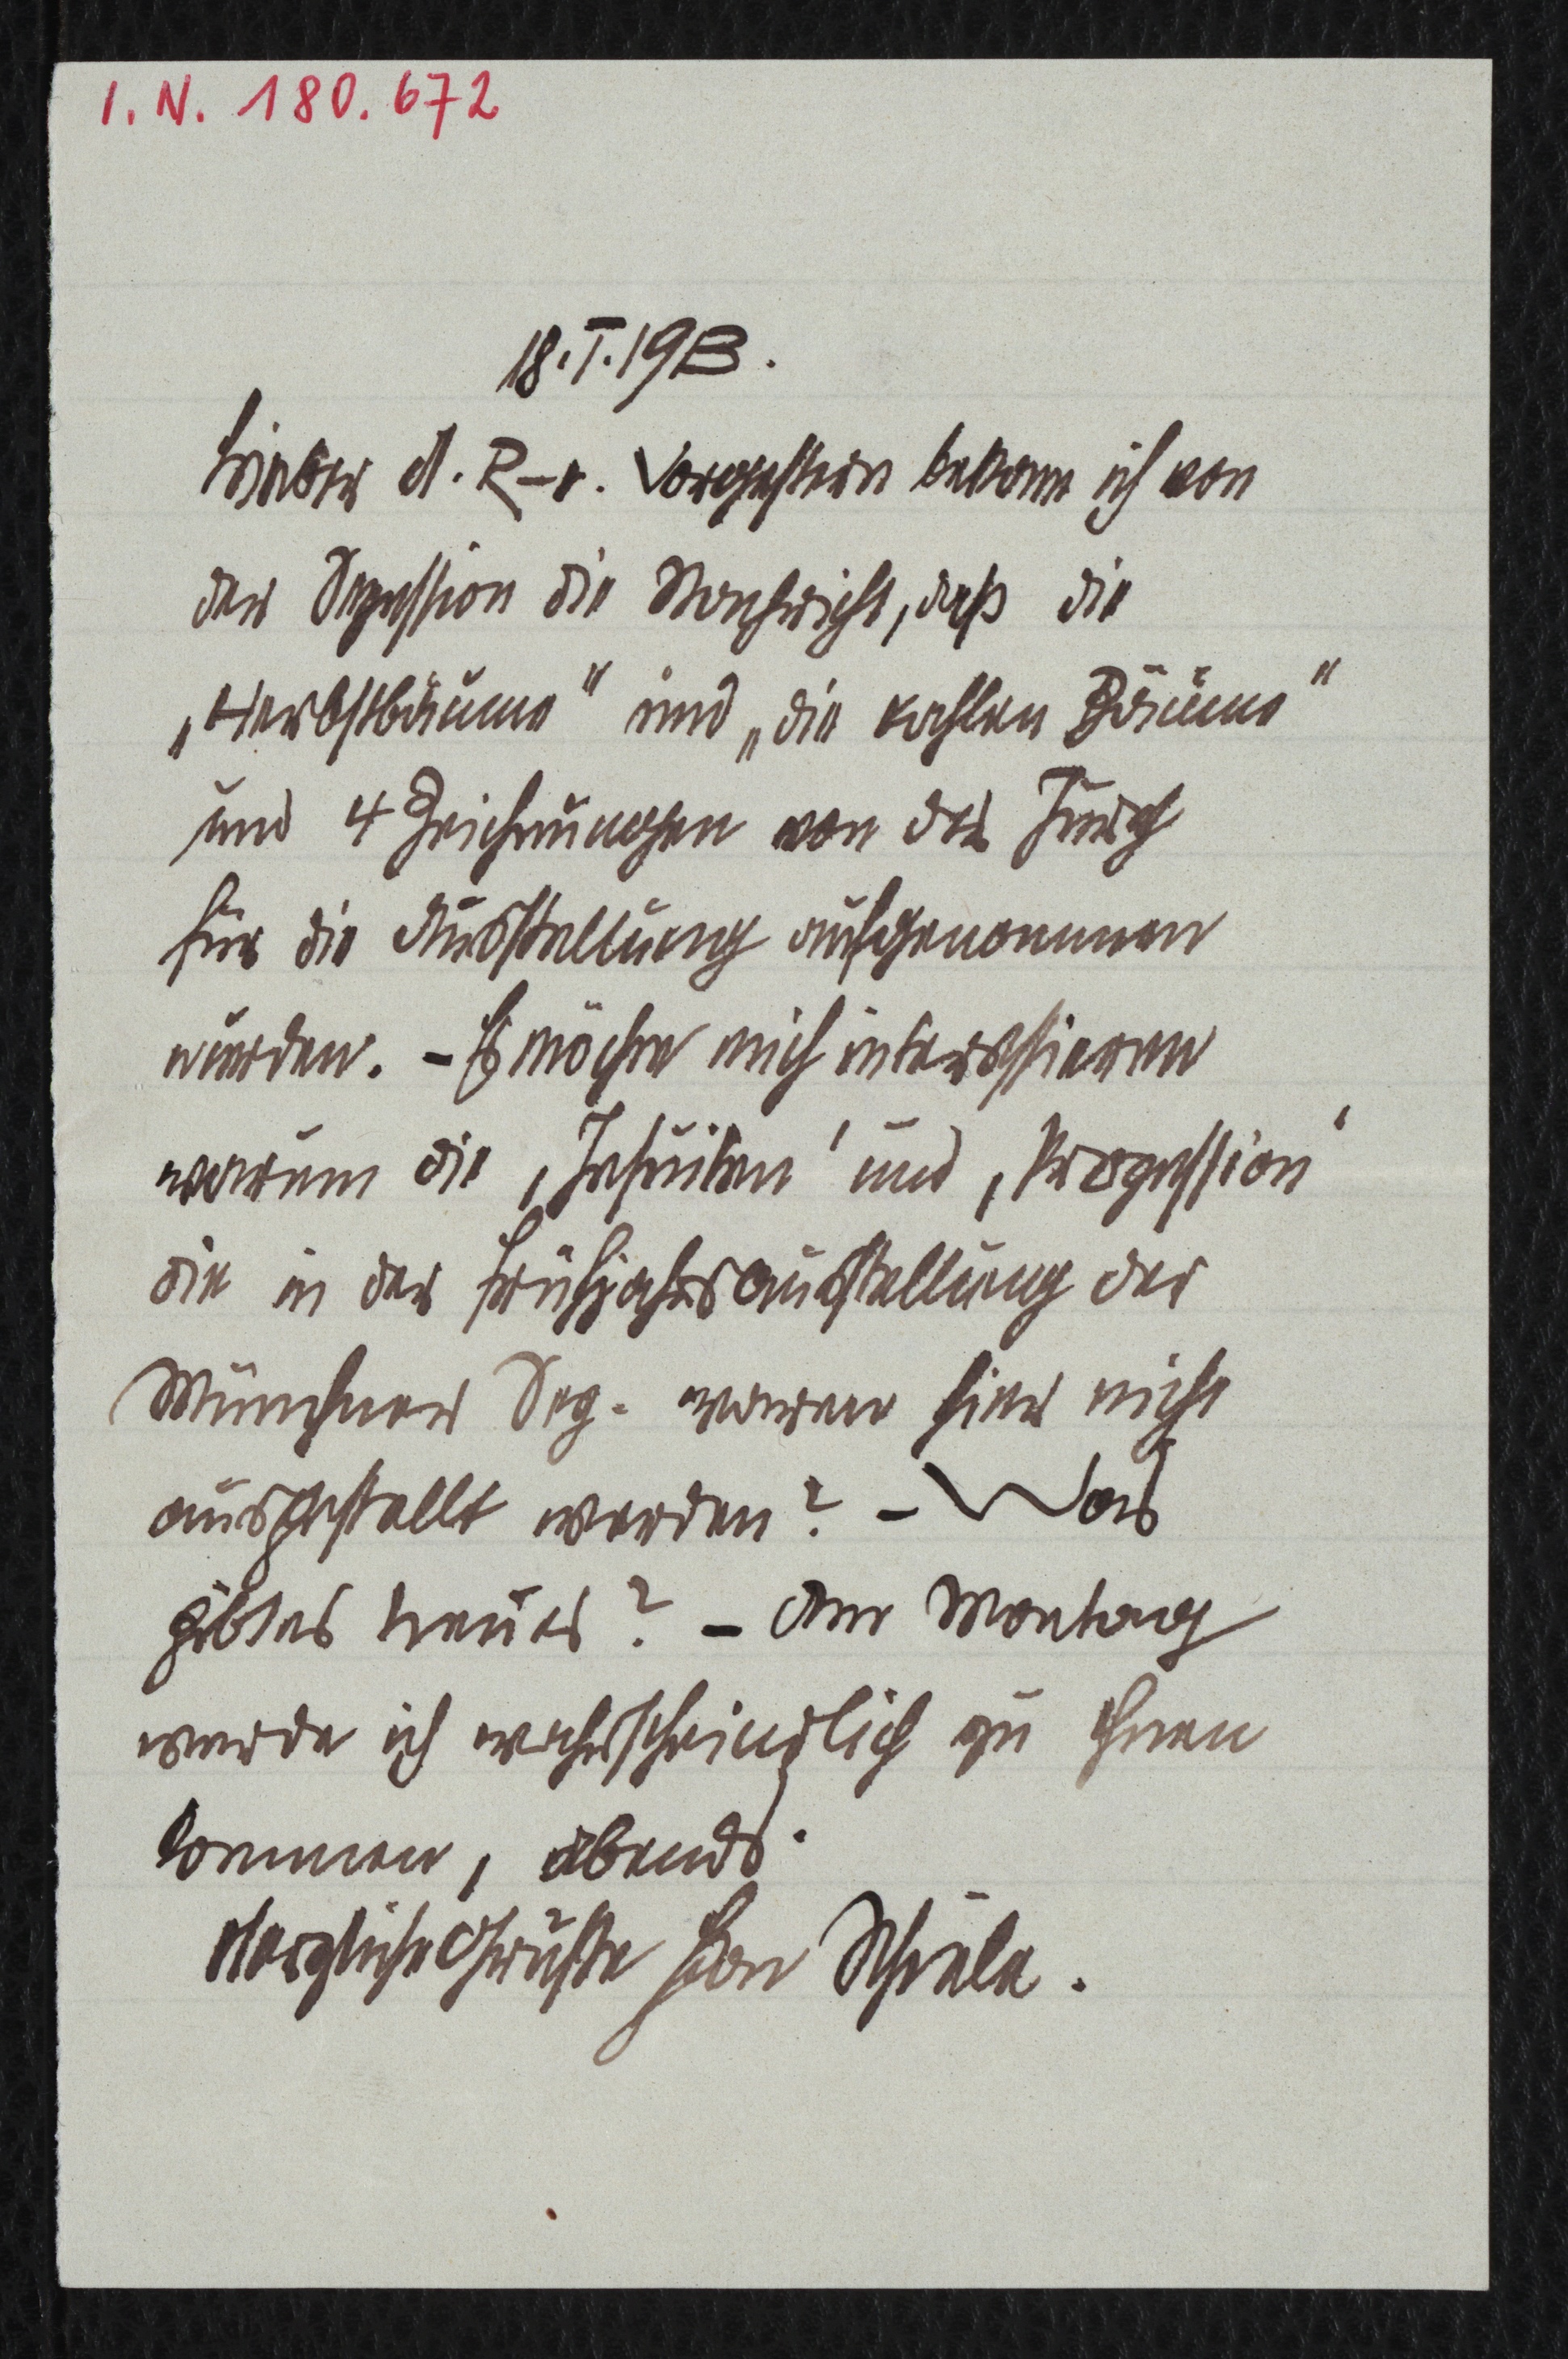 I.N. 180.672
18.I.1913.
Lieber A. R-r. Vorgestern bekam ich von
der Sezession die Nachricht, daß die
„Herbstbäume“ und „die kahlen Bäume“
und 4 Zeichnungen von der Jury
für die Ausstellung aufgenommen
wurden. – Es möchte mich interessieren
warum die ‚Jesuiten‘ und ‚Prozession‘
die in der Frühjahrsausstellung der
Münchner Sez. waren hier nicht
ausgestellt werden? – Was
gibtes neues? – Am Montag
werde ich wahrscheindlich zu Ihnen
kommen, abends.
Herzliche Grüße Egon Schiele.